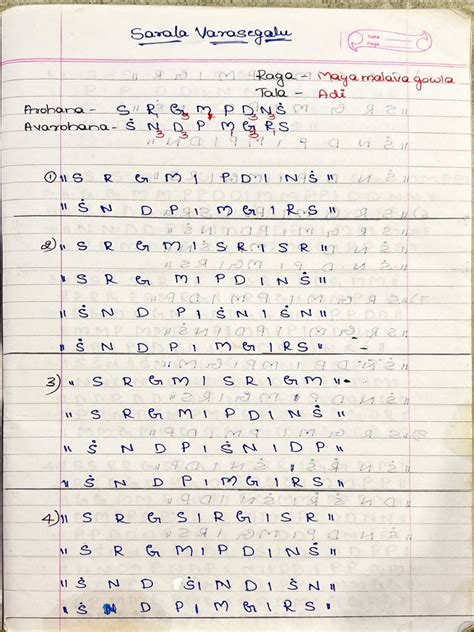 Sarala Varasegalu
Date
Page
Raga - Mayamalava gowla
Tala - Adi
Arohana - S R G M P D N Ṡ
Avarohana - Ṡ N D P M G R S
1) " S R G M I P D I N Ṡ "
" Ṡ N D P I M G I R S "
2) " S R G M I S R I S R "
" S R G M I P D I N Ṡ "
" Ṡ N D P I Ṡ N I Ṡ N "
" Ṡ N D P I M G I R S "
3) " S R G M I S R I G M "
" S R G M I P D I N Ṡ "
" Ṡ N D P I Ṡ N I D P "
" Ṡ N D P I M G I R S "
4) " S R G S I R G I S R "
" S R G M I P D I N Ṡ "
" Ṡ N D Ṡ I N D I Ṡ N "
" Ṡ N D P I M G I R S "